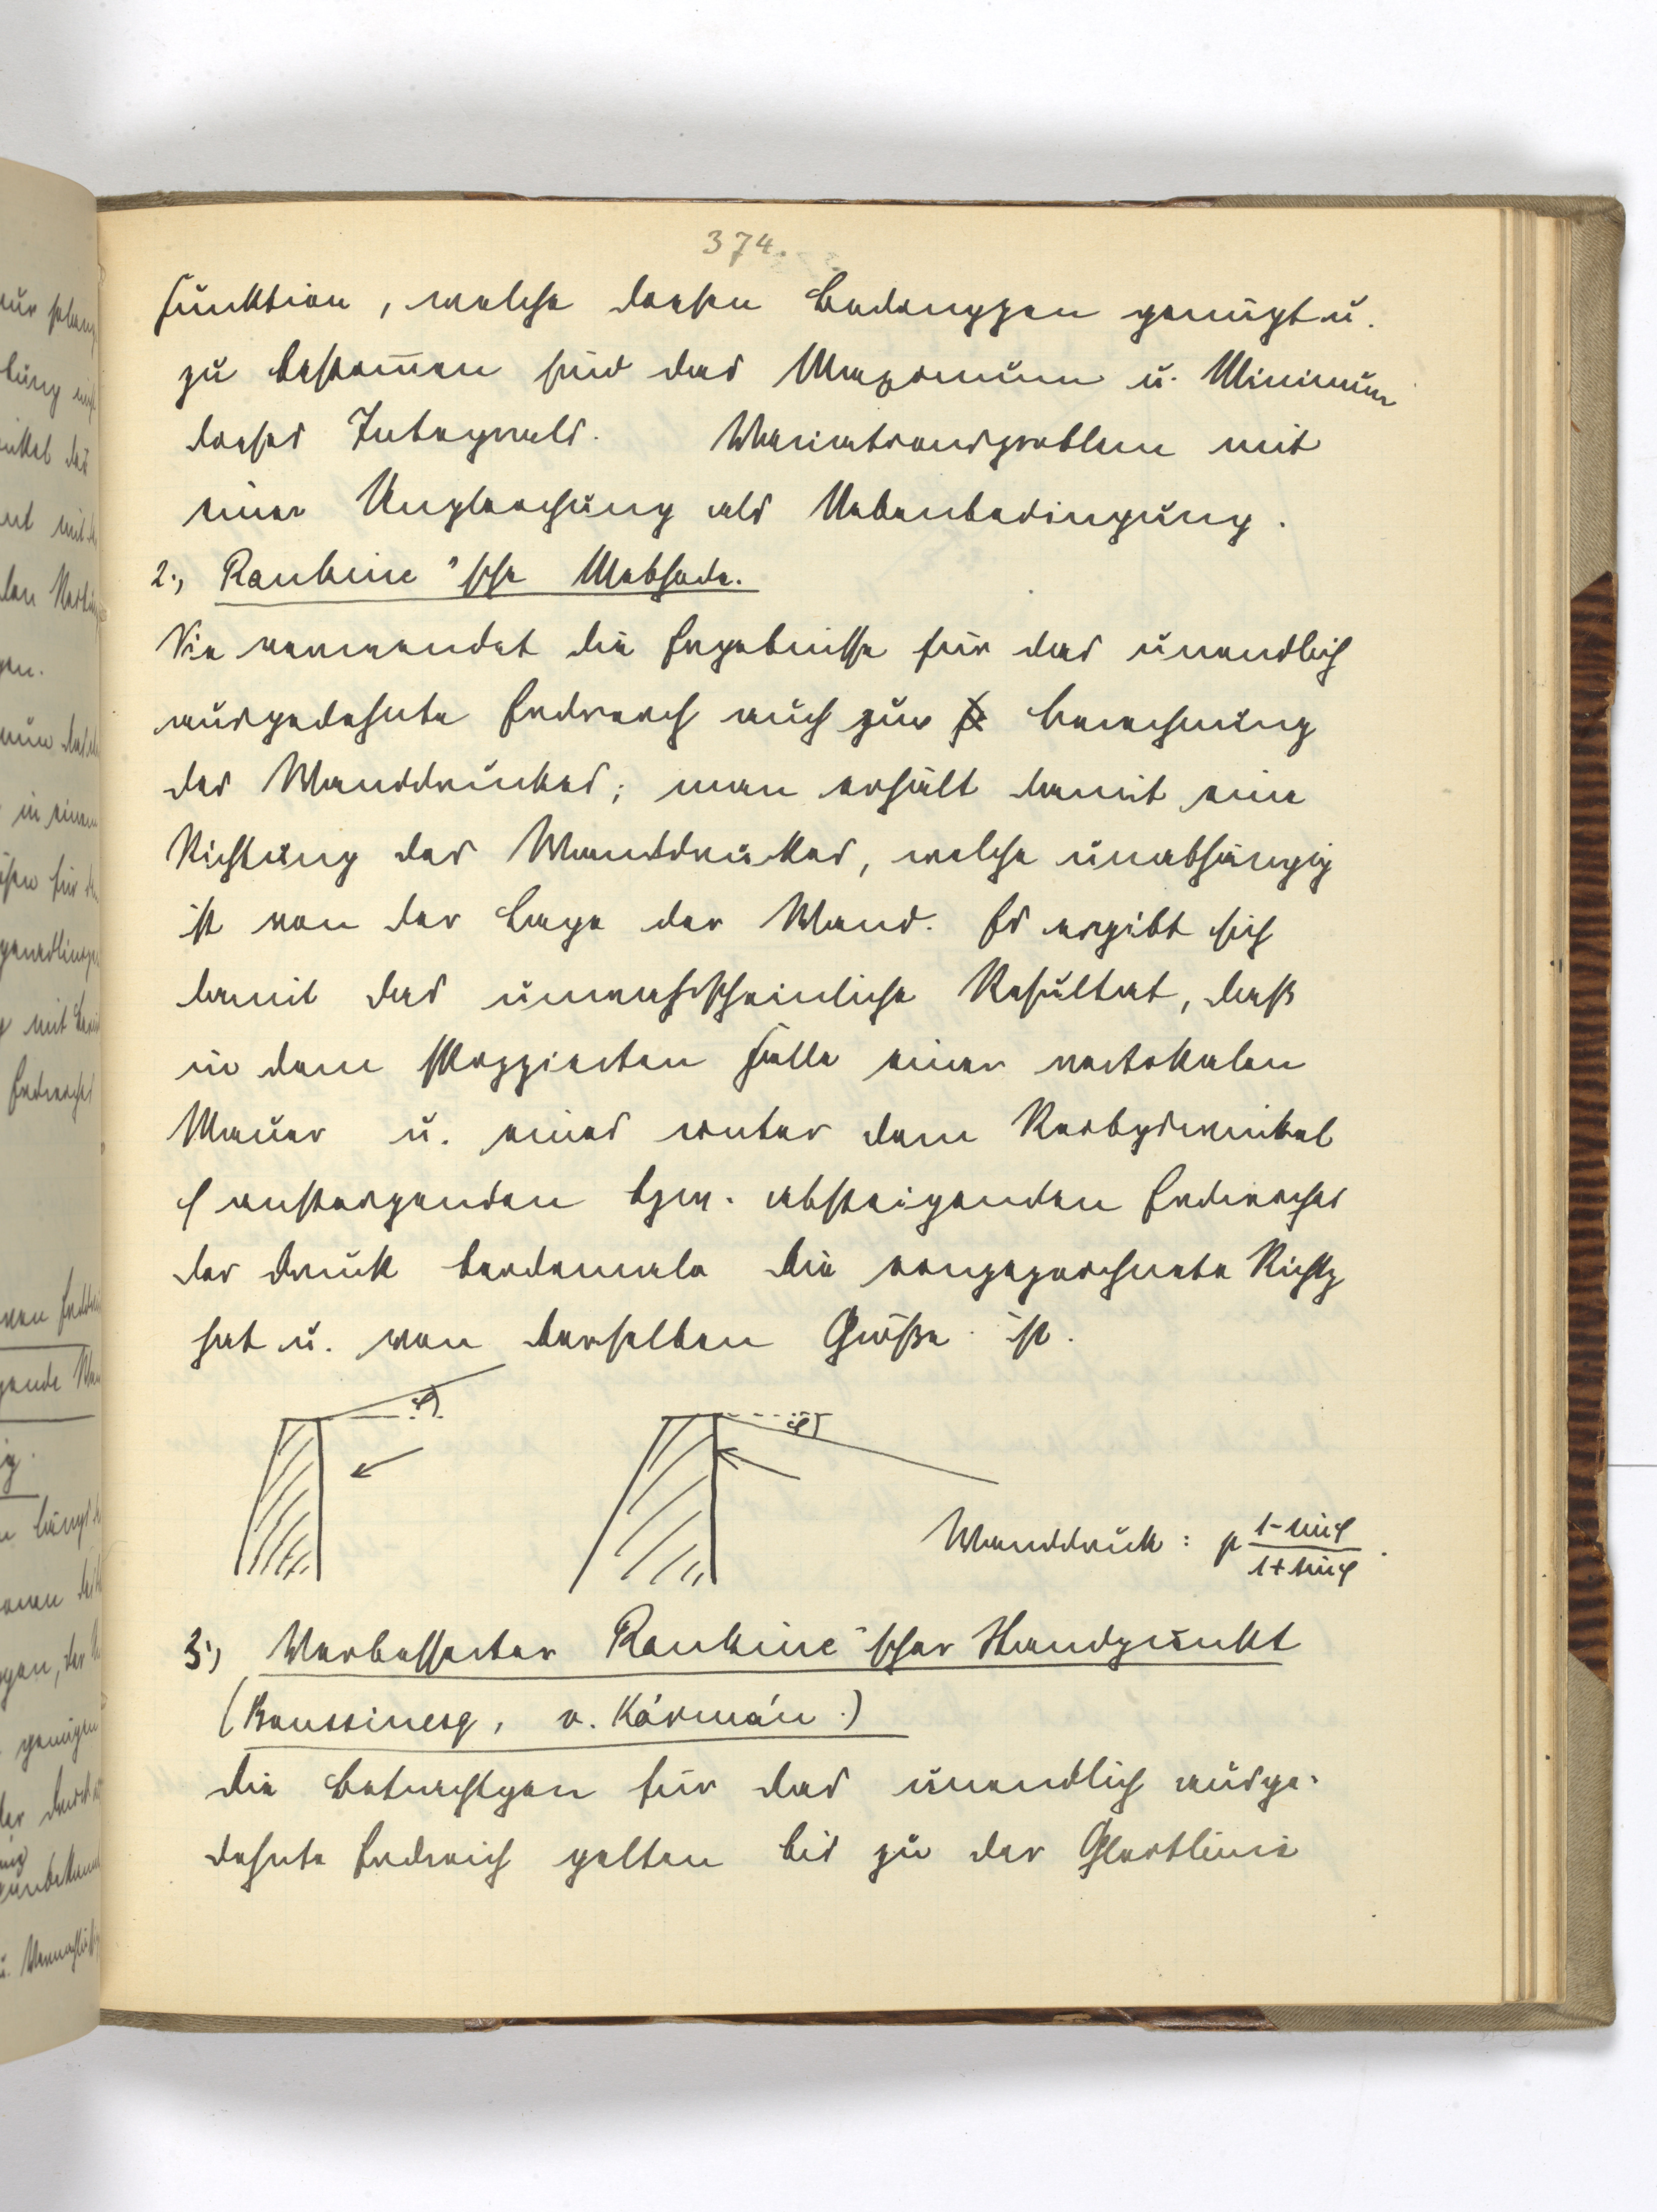 374.
Funktion, welche diesen Bedinggen genügt u.
zu bestim̄en sind das Maximum u. Minimum
dieses Integrals. Variationsproblem mit
einer Ungleichung als Nebenbedingung.
2., Rankine'sche Methode.
Sie verwendet die Ergebnisse für das unendlich
ausgedehnte Erdreich auch zur Berechnung
des Wanddruckes; man erhält damit eine
Richtung des Wanddruckes, welche unabhängig
ist von der Lage der Wand. Es ergibt sich
damit das unwahrscheinliche Resultat, daß
in dem skizzierten Falle einer vertikalen
Mauer u. eines unter dem Reibgswinkel
φ ansteigenden bzw. absteigenden Erdreiches
der Druck beidemale die eingezeichnete Richtg
hat u. von derselben Größe ist.
φ φ
Wanddruck: p (1-sinφ)/(1+sinφ).
3., Verbesserter Rankine'scher Standpunkt
(Boussinesq, v. Kármán.)
Die Betrachtgen für das unendlich ausge-
dehnte Erdreich gelten bis zu der Gleitlinie